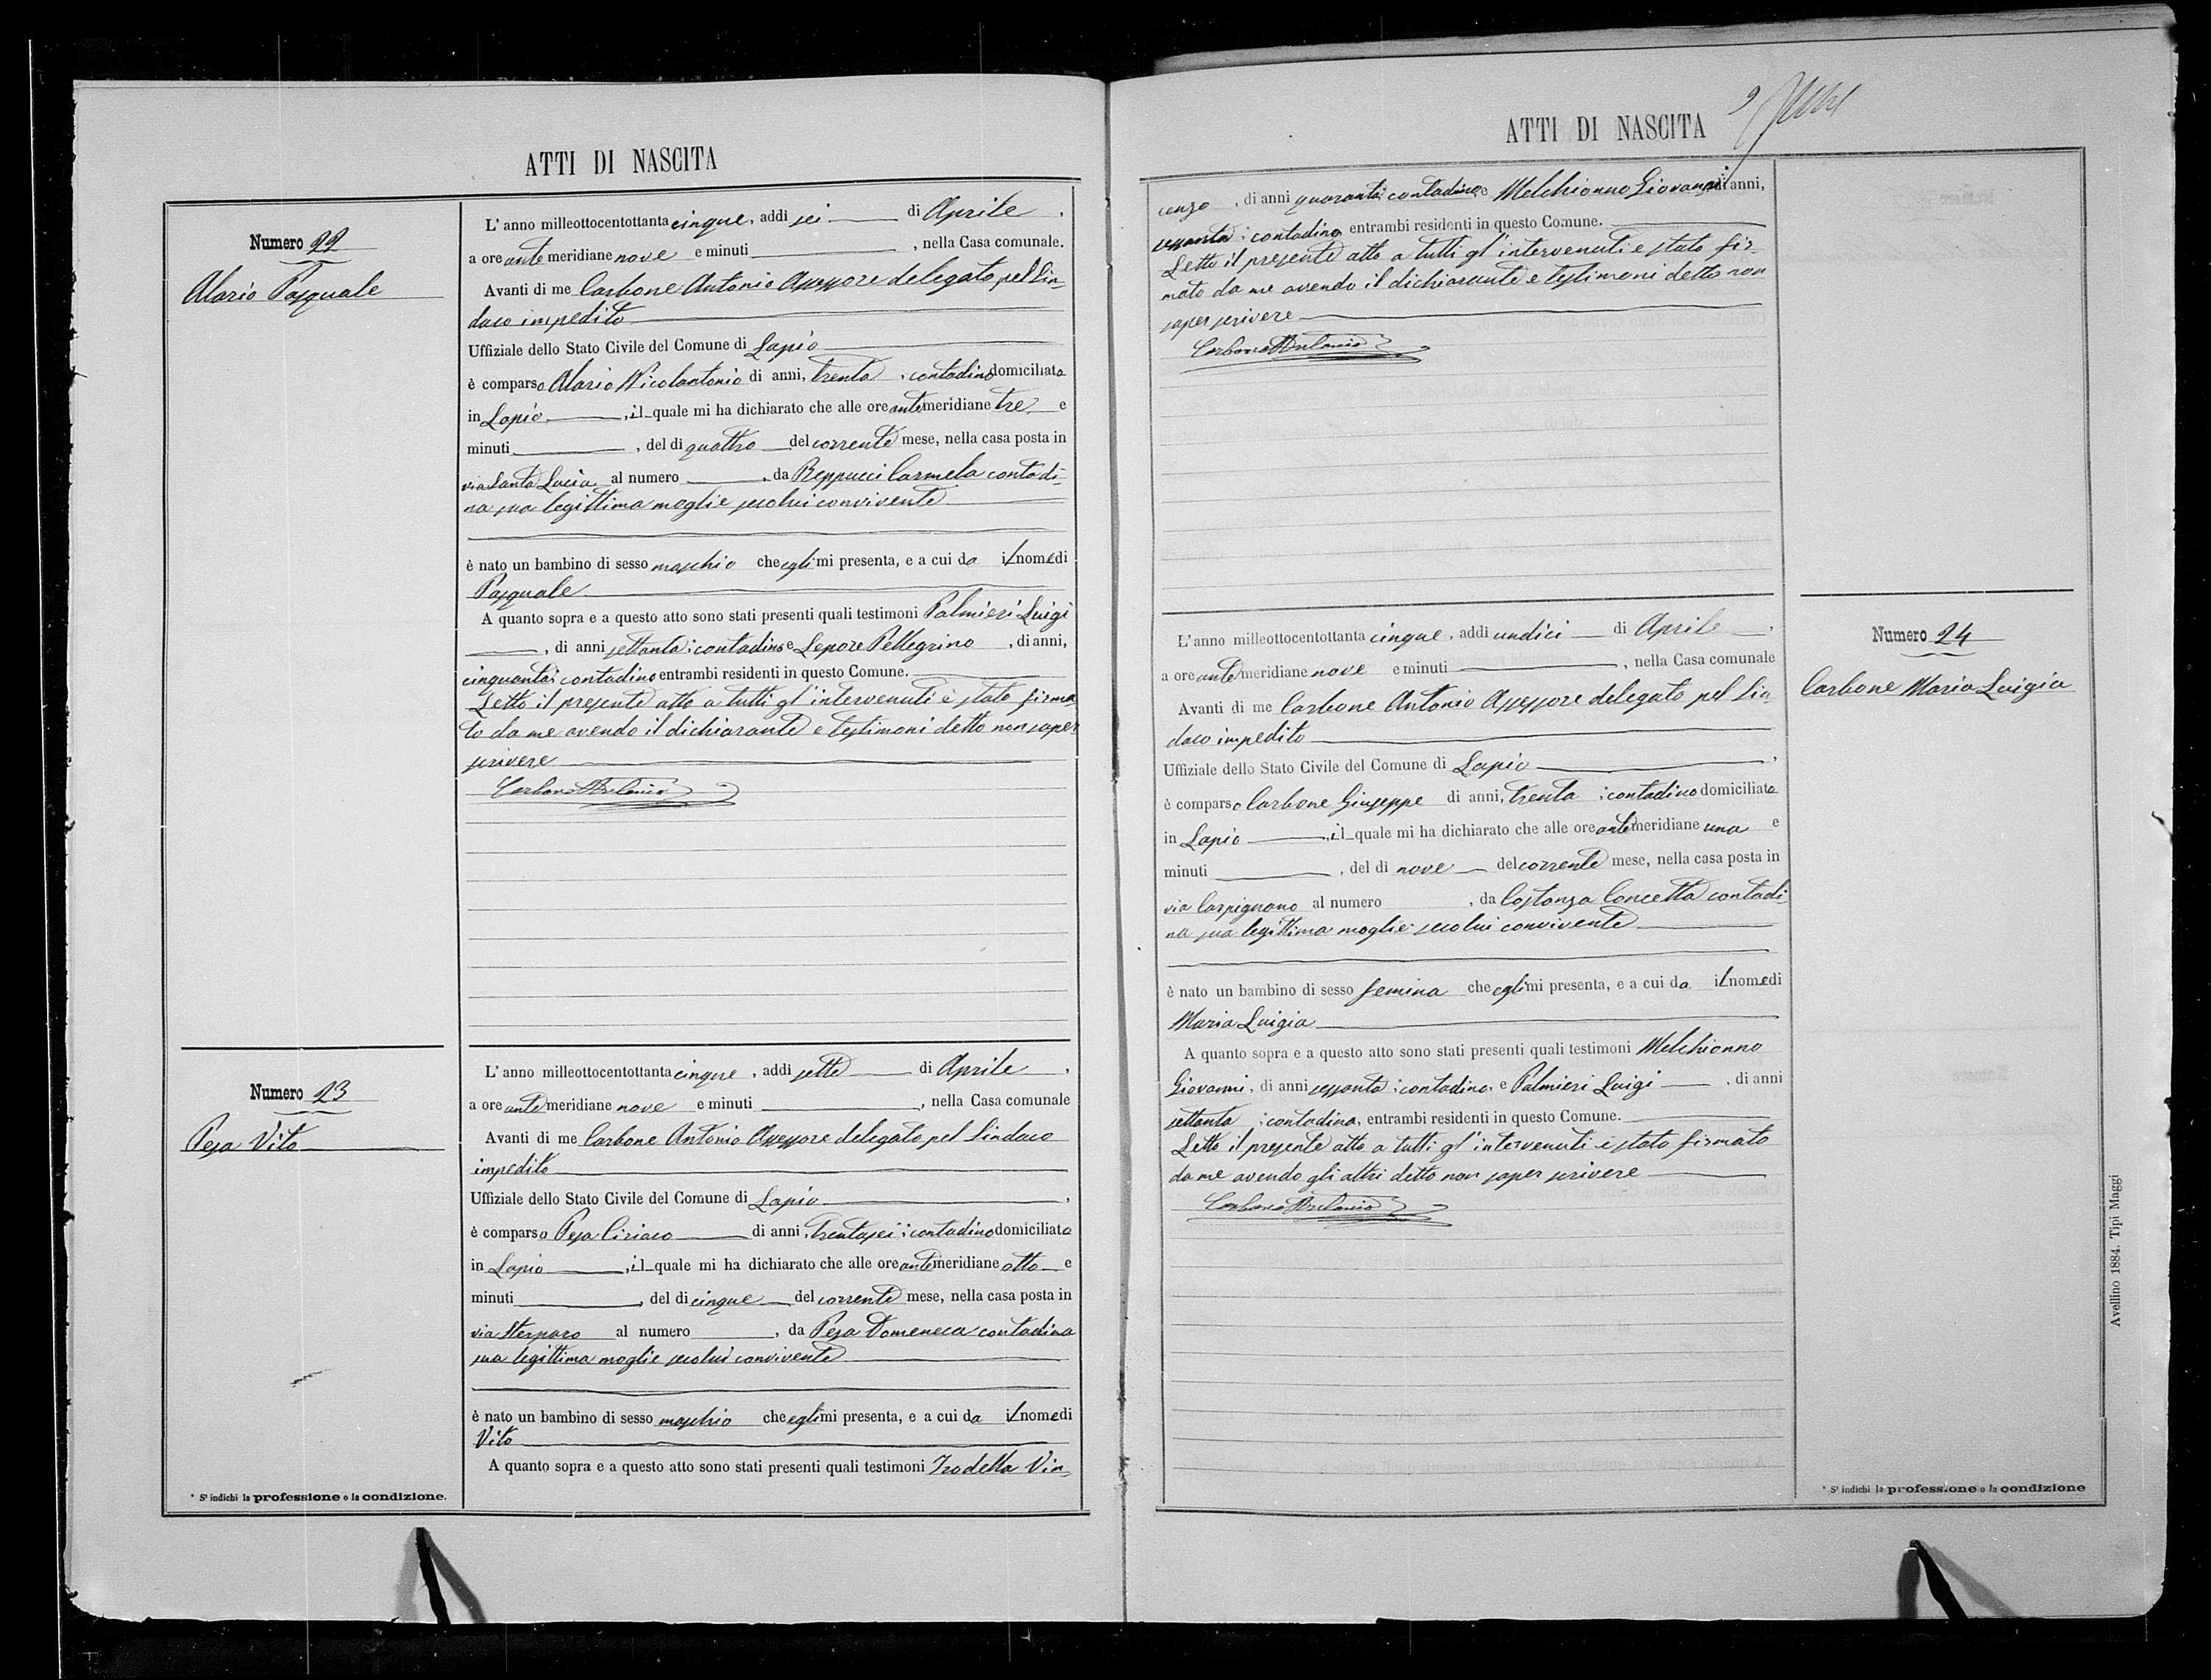 ATTI DI NASCITA
Numero 22
Alario Pasquale
L'anno milleottocentottanta cinque, addì sei di Aprile,
a ore antemeridiane nove e minuti , nella Casa comunale.
Avanti di me Carbone Antonio Assessore delegato pel Sin-
daco impedito
Uffiziale dello Stato Civile del Comune di Lapio
è comparso Alario Nicolantonio di anni, trenta, contadino domiciliato
in Lapio, il quale mi ha dichiarato che alle ore antemeridiane tre e
minuti , del dì quattro del corrente mese, nella casa posta in
via Santa Lucia al numero , da Reppucci Carmela contadi-
na sua legittima moglie secolui convivente
è nato un bambino di sesso maschio che egli mi presenta, e a cui da il nome di
Pasquale
A quanto sopra e a questo atto sono stati presenti quali testimoni Palmieri Luigi
, di anni settanta, contadino e Lepore Pellegrino, di anni,
cinquanta, contadino entrambi residenti in questo Comune.
Letto il presente atto a tutti gl'intervenuti è stato firma
to da me avendo il dichiarante e testimoni detto non saper
scrivere
Carbone Antonio
Numero 23
Pesa Vito
L'anno milleottocentottanta cinque, addì sette di Aprile,
a ore antemeridiane nove e minuti , nella Casa comunale
Avanti di me Carbone Antonio Assessore delegato pel Sindaco
impedito
Uffiziale dello Stato Civile del Comune di Lapio,
è comparso Pesa Ciriaco di anni, trentasei, contadino domiciliato
in Lapio, il quale mi ha dichiarato che alle ore antemeridiane otto e
minuti , del dì cinque del corrente mese, nella casa posta in
via Sterparo al numero , da Pesa Domeneca contadina
sua legittima moglie secolui convivente
è nato un bambino di sesso maschio che egli mi presenta, e a cui da il nome di
Vito
A quanto sopra e a questo atto sono stati presenti quali testimoni Trodella Vin-
* Si indichi la professione o la condizione.
ATTI DI NASCITA
cenzo, di anni quaranta, contadino e Melchionno Giovanni di anni,
sessanta, contadino entrambi residenti in questo Comune.
Letto il presente atto a tutti gl'intervenuti e stato fir-
mato da me avendo il dichiarante e testimoni detto non
saper scrivere
Carbone Antonio
Numero 24
Carbone Maria Luigia
L'anno milleottocentottanta cinque, addì undici di Aprile,
a ore antemeridiane nove e minuti , nella Casa comunale
Avanti di me Carbone Antonio Assessore delegato pel Sin-
daco impedito
Uffiziale dello Stato Civile del Comune di Lapio,
è comparso Carbone Giuseppe di anni, trenta, contadino domiciliato
in Lapio, il quale mi ha dichiarato che alle ore antemeridiane una e
minuti , del dì nove del corrente mese, nella casa posta in
via Carpignano al numero , da Costanza Concetta contadi-
na sua legittima moglie secolui convivente
è nato un bambino di sesso femina che egli mi presenta, e a cui da il nome di
Maria Luigia
A quanto sopra e a questo atto sono stati presenti quali testimoni Melchionno
Giovanni, di anni sessanta, contadino, e Palmieri Luigi, di anni
settanta, contadino, entrambi residenti in questo Comune.
Letto il presente atto a tutti gl'intervenuti è stato firmato
da me avendo gli altri detto non saper scrivere
Carbone Antonio
* Si indichi la professione o la condizione
Avellino 1884. Tipi Maggi